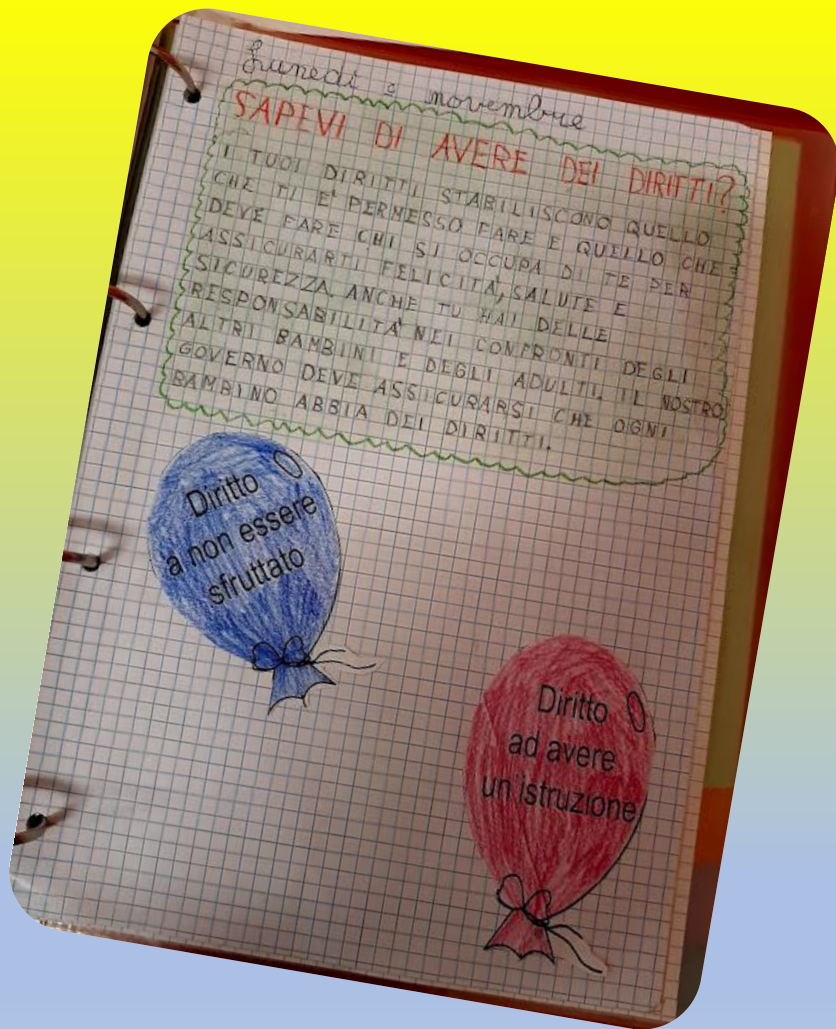 Lunedì 9 novembre
SAPEVI DI AVERE DEI DIRITTI?
I TUOI DIRITTI STABILISCONO QUELLO
CHE TI È PERMESSO FARE E QUELLO CHE
DEVE FARE CHI SI OCCUPA DI TE PER
ASSICURARTI FELICITÀ, SALUTE E
SICUREZZA. ANCHE TU HAI DELLE
RESPONSABILITÀ NEI CONFRONTI DEGLI
ALTRI BAMBINI E DEGLI ADULTI. IL NOSTRO
GOVERNO DEVE ASSICURARSI CHE OGNI
BAMBINO ABBIA DEI DIRITTI.
Diritto
a non essere
sfruttato
Diritto
ad avere
un'istruzione